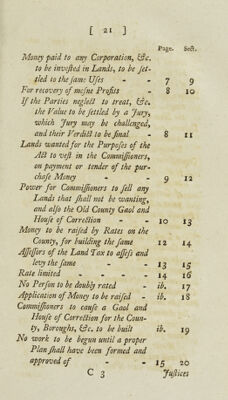 [ 21 ]
Page. Sect.
Money paid to any Corporation, &c.
to be invested in Lands, to be set-
tled to the same Uses - - 7 9
For recovery of mesne Profits - 8 10
If the Parties neglect to treat, &c.
the Value to be settled by a Jury,
which Jury may be challenged,
and their Verdict to be final - 8 11
Lands wanted for the Purposes of the
Act to vest in the Commissioners,
on payment or tender of the pur-
chase Money - - 9 12
Power for Commissioners to sell any
Lands that shall not be wanting,
and also the Old County Gaol and
House of Correction - - 10 13
Money to be raised by Rates on the
County, for building the same 12 14
Assessors of the Land Tax to assess and
levy the same - - 13 15
Rate limited - - - - 14 16
No Person to be doubly rated - ib. 17
Application of Money to be raised - ib. 18
Commissioners to cause a Gaol and
House of Correction for the Coun-
ty, Boroughs, &c. to be built ib. 19
No work to be begun until a proper
Plan shall have been formed and
approved of - - 15 20
C 3 Justices